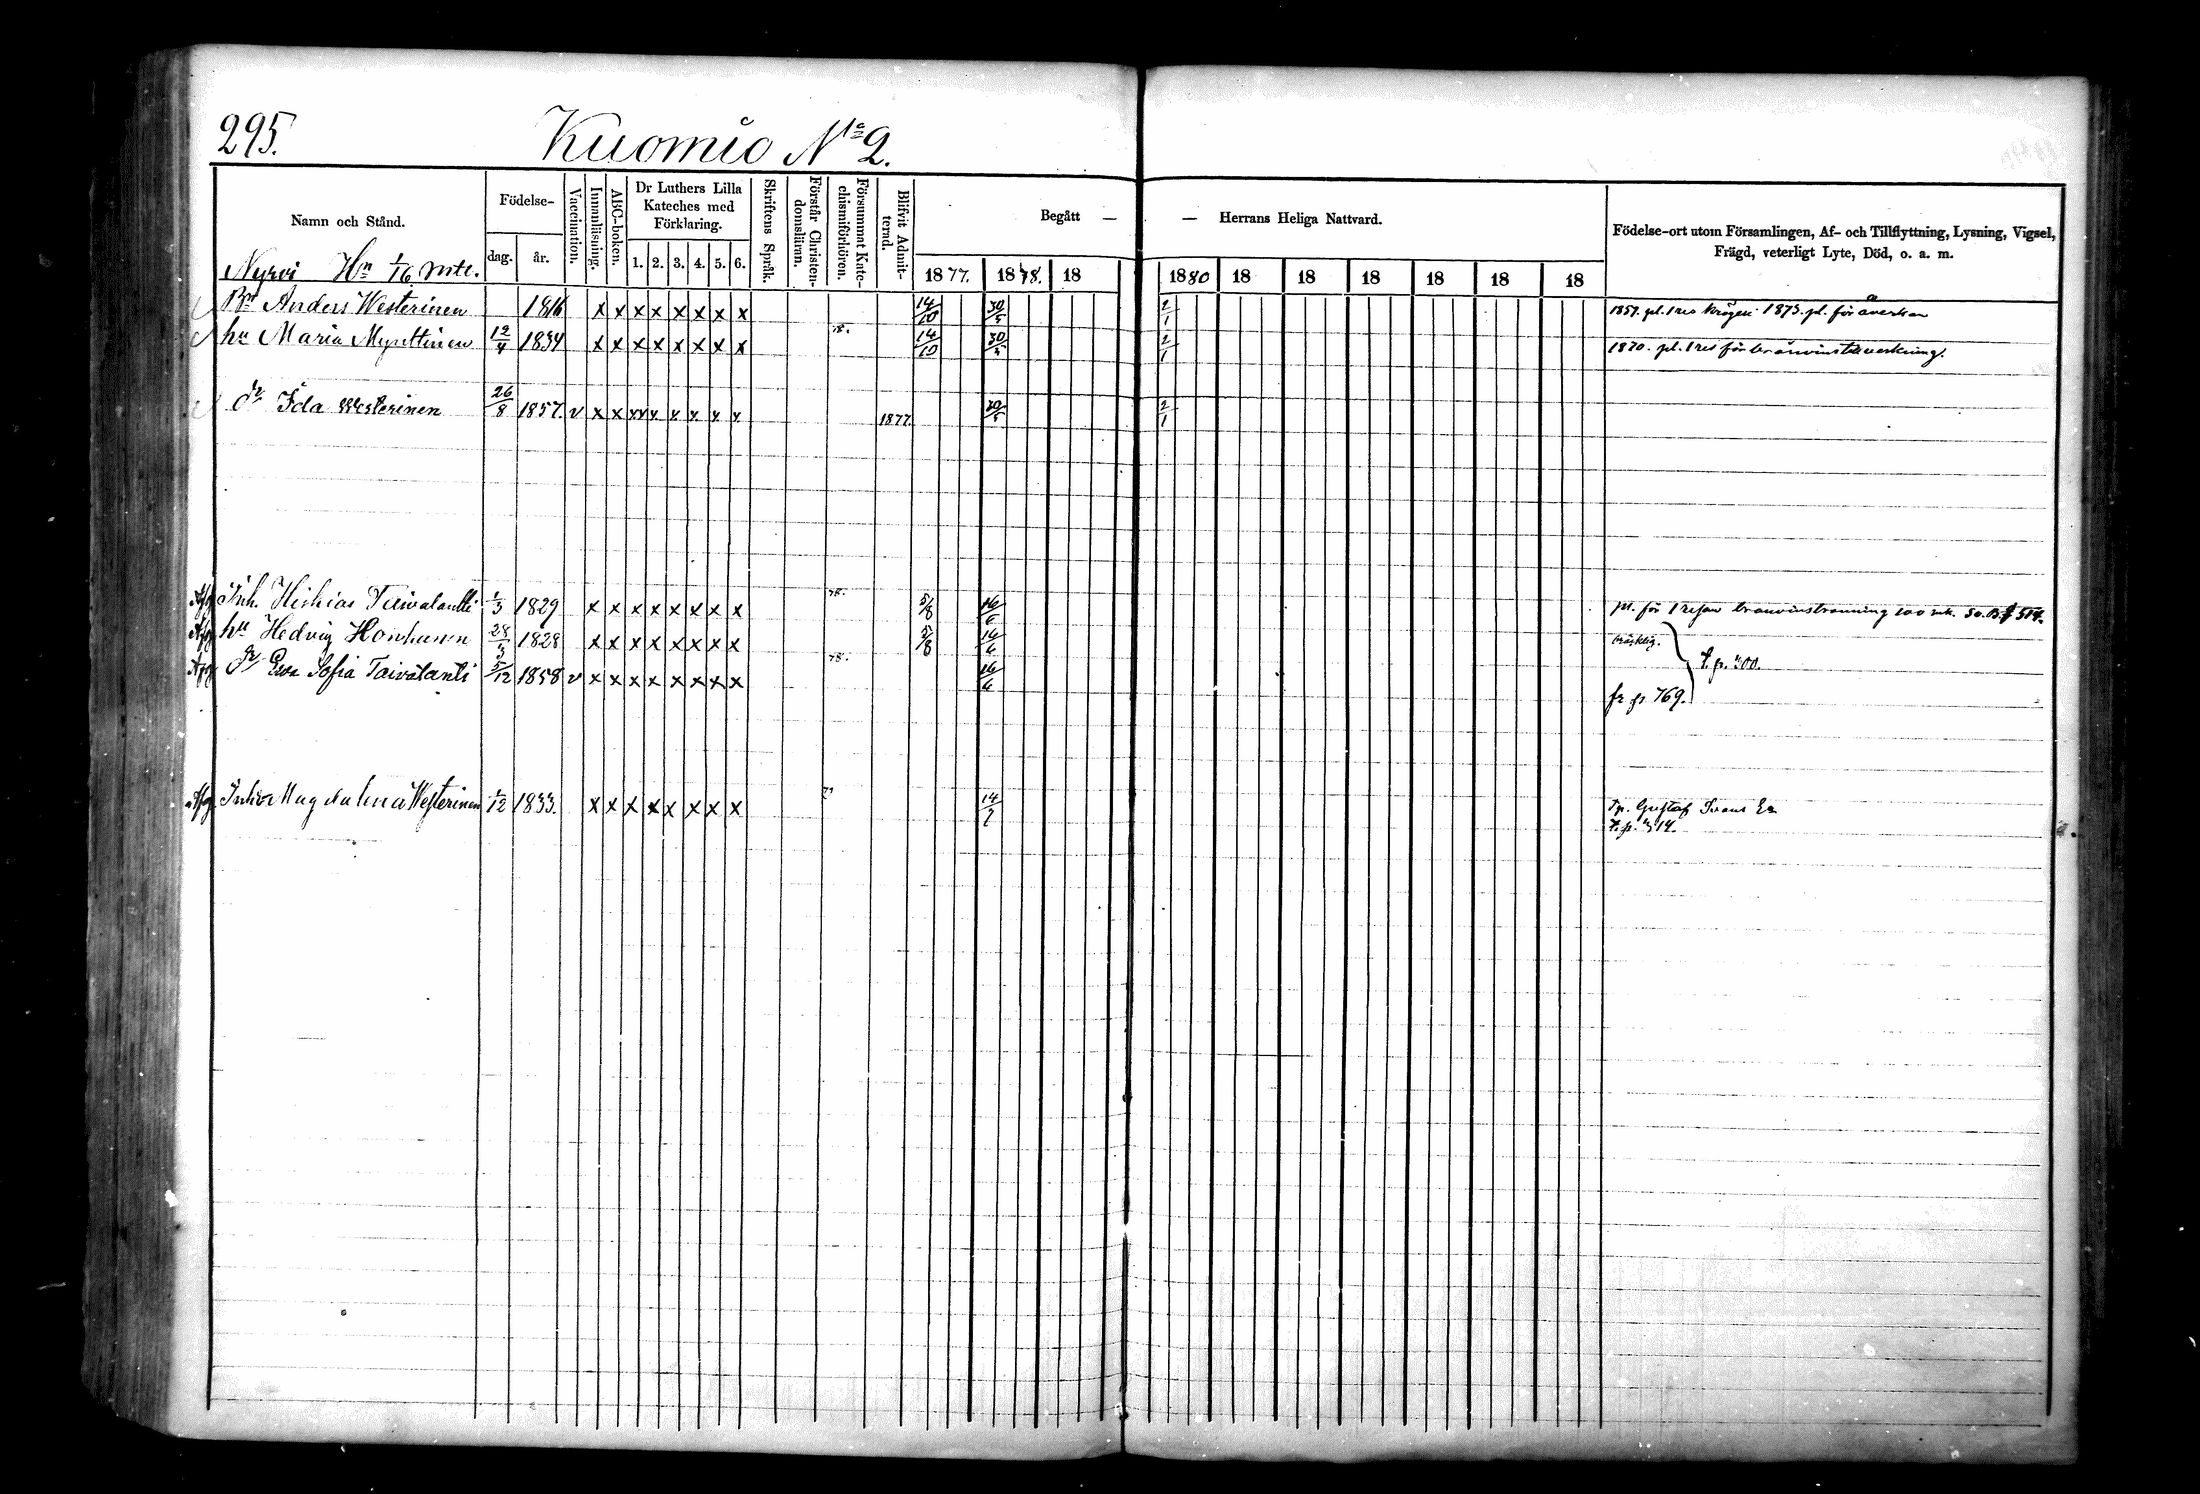 295.
Kuomio No 2.
Namn och Stånd.
Födelse-
dag.
år.
Vaccination.
Innanläsning.
ABC-boken.
Dr Luthers Lilla
Kateches med
Förklaring.
1. 2. 3. 4. 5. 6.
Skriftens Språk.
Förstår Christen-
domsläran.
Försummat Kate-
chismiförhören.
Blifvit Admit-
terad.
Begått — — Herrans Heliga Nattvard.
1877. 1878. 18 1880 18 18 18 18 18 18
Födelse-ort utom Församlingen, Af- och Tillflyttning, Lysning, Vigsel,
Frägd, veterligt Lyte, Död, o. a. m.
Hn 1/16 mtl.
Anders Westerinen 1816 x x x x x x x x 14/10 30/5 2/1 1873. pl. för åverkan
hu Maria Myuttinen 12/4 1834 x x x x x x x x 78. 14/10 30/5 2/1 1870. pl. 1 res för bränvinstillverkning.
dr Ida Westerinen 26/8 1857. v x x x x x x x x 1877. 30/5 2/1
Afsg Inh. Hiskias Taivalantti 1/3 1829 x x x x x x x x 78. 5/8 16/6 pl. för 1 resan bränvinsbränning 100 mk.
Afsg hu Hedvig Honkanen 28/3 1828 x x x x x x x x 5/8 16/6 bräcklig.
Afsg dr Eva Sofia Taivalanti 5/12 1858 v x x x x x x x x 78. 16/6 t. p. 300.
fr p 769.
Afsg Magdalena Westerinen 1/12 1833. x x x x x x x x 14/7 Gustaf
t. p. 314.